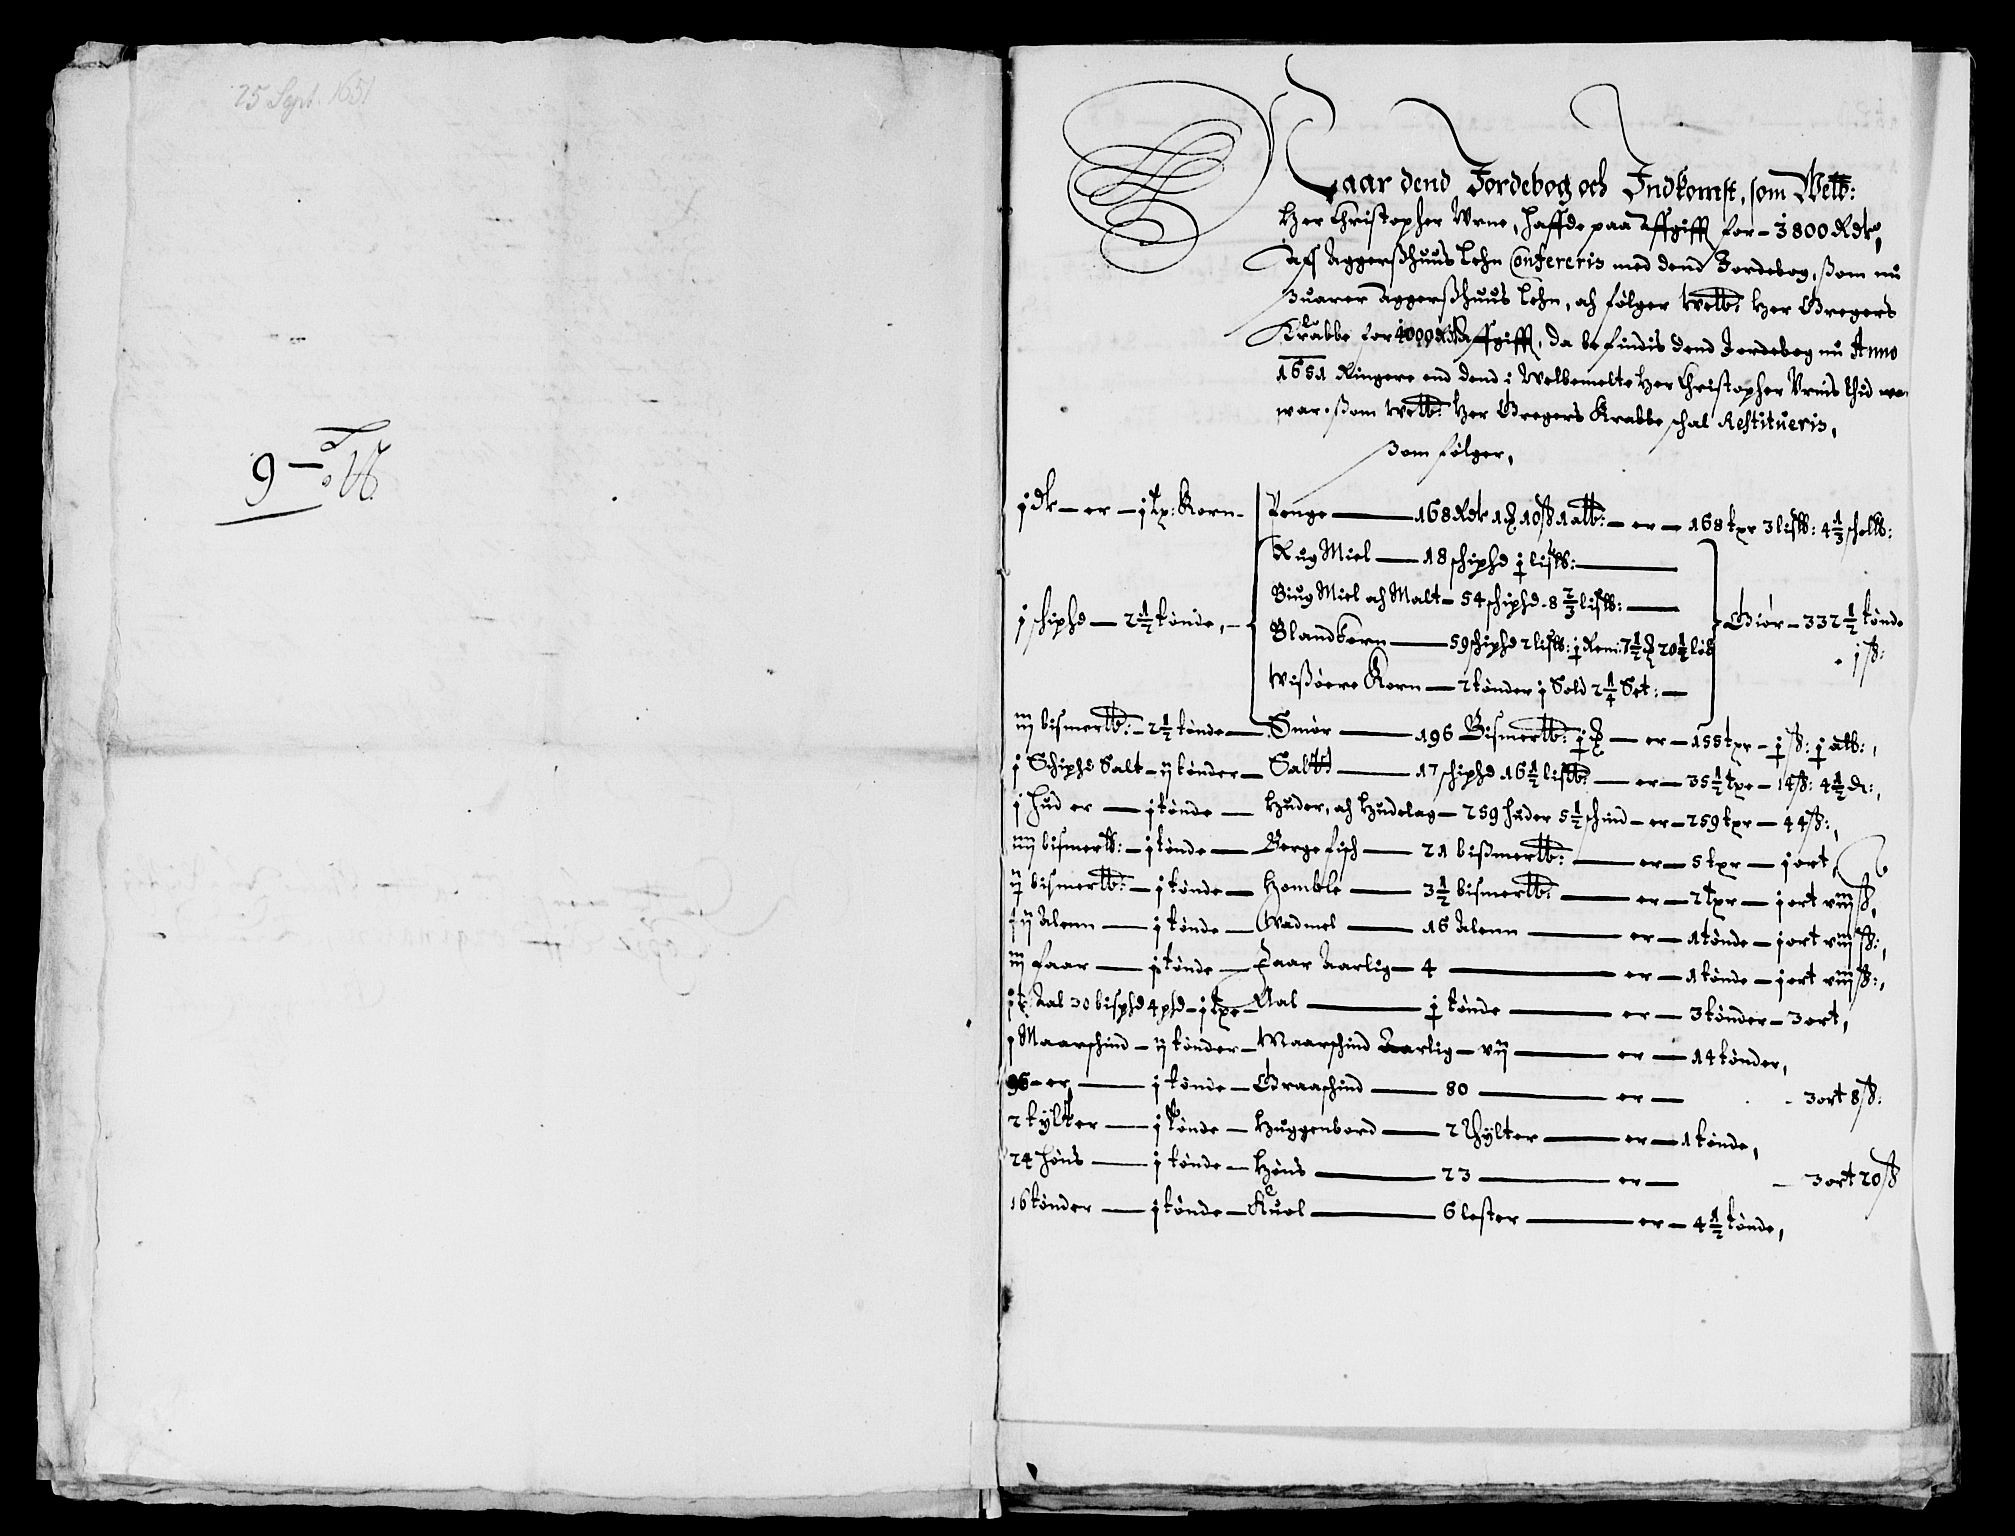 25 Sept. 1651
9 – 
Naar dend Jordebog och Indkomst, som Welb:
Her Christopher Urne, haffde paa Affgifft for – 3800 Rdr,
aff Aggerßhuus Lehn Confereris med dend Jordebog, ßom nu
Suarer Aggerßhuus Lehn, och følger Welb: Her Gregers
Krabbe for 4000 Rdr Affgifft, da befindis dend Jordebog nu Anno
1651 Ringere end dend i Welbemelte Her Christopher Urnis thid
war, ßom Welb: Her Gregers Krabbe schal Restitueris,
Som følger,
j dr – er – j tp: Korn – Penge – 168 Rdr 1 10 ß 1 alb: – er – 168 tpr 3 lis℔: 4 1/3 scholb:
Rug Miel – 18 schipd j lis℔:
Biug Miel och Malt – 54 schipd – 8 2/3 lis℔:
j schipd – 2 1/2 tønde, – Blandkorn – 59 schipd 2 lis℔: j Rem: 7 1/2 20 1/2 løb Giør – 332 1/2 tønde
j ß:
Wißøere Korn – 2 tønder j Sold 2 1/4 Set: –
iij bismer℔: – 2 1/2 tønde – Smør – 196 Bismer℔: j – er – 155 tpr – j ß: j alb:,
j Schipd Salt – ij tønder – Salt – 17 schipd 16 1/2 lis℔: – er – 35 1/2 tpr – 14 ß: 4 1/2 d:,
j hud er – j tønde – Huder, och Hudelag – 259 huder 5 1/2 schind – er – 259 tpr – 44 ß:,
iiij bismer℔: – j tønde – Bergefisch – 21 bißmer℔: – er – 5 tpr – j ort,
ij bismer℔: – j tønde – Homble – 3 1/2 bismer℔: – er – 2 tpr – j ort viij ß,
xij Alenn – j tønde – Wadmel – 16 Alenn – er – 1 tønde – j ort viij ß:,
iij faar – j tønde – Faar Aarlig – 4 – er – 1 tønde – j ort viij ß:,
j t Aal 30 bispd 4 pd – j tpr – Aal – j tønde – er – 3 tønder – 3 ort,
j Maarschind – ij tønder – Maarschind Aarlig – vij – er – 14 tønder,
96 – er – j tønde – Graaschind – 80 – er – 3 ort 8 ß:
2 tylter – j tønde – Huggenbord – 2 Thylter – er – 1 tønde,
24 høns – j tønde – Høns – 23 – er – 3 ort 20 ß
16 tønder – j tønde – Kuol – 6 lester – er – 4 1/2 tønde,